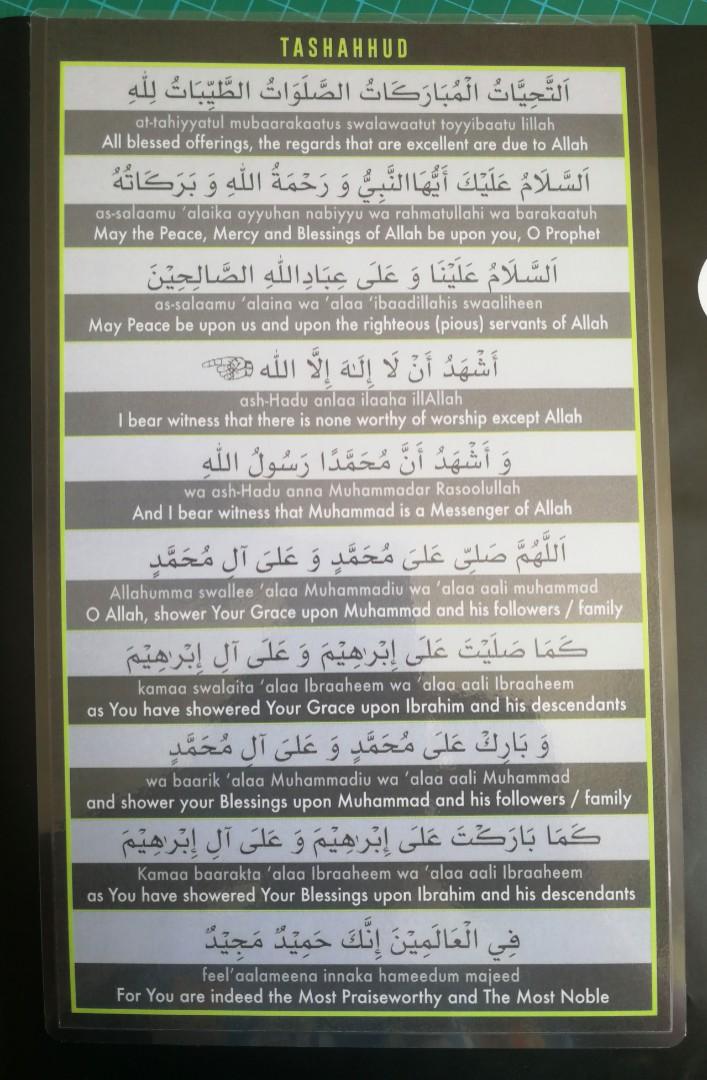 TASHAHHUD
اَلتَّحِيَّاتُ الْمُبَارَكَاتُ الصَّلَوَاتُ الطَّيِّبَاتُ لِلّٰهِ
at-tahiyyatul mubaarakaatus swalawaatut toyyibaatu lillah
All blessed offerings, the regards that are excellent are due to Allah
اَلسَّلَامُ عَلَيْكَ أَيُّهَاالنَّبِيُّ وَ رَحْمَةُ اللّٰهِ وَ بَرَكَاتُهُ
as-salaamu ‘alaika ayyuhan nabiyyu wa rahmatullahi wa barakaatuh
May the Peace, Mercy and Blessings of Allah be upon you, O Prophet
اَلسَّلَامُ عَلَيْنَا وَ عَلَى عِبَادِاللّٰهِ الصَّالِحِيْنَ
as-salaamu ‘alaina wa ‘alaa ‘ibaadillahis swaaliheen
May Peace be upon us and upon the righteous (pious) servants of Allah
أَشْهَدُ أَنْ لَا إِلٰهَ إِلَّا اللّٰه
ash-Hadu anlaa ilaaha illAllah
I bear witness that there is none worthy of worship except Allah
وَ أَشْهَدُ أَنَّ مُحَمَّدًا رَسُولُ اللّٰهِ
wa ash-Hadu anna Muhammadar Rasoolullah
And I bear witness that Muhammad is a Messenger of Allah
اَللَّهُمَّ صَلِّى عَلىَ مُحَمَّدٍ وَ عَلىَ آلِ مُحَمَّدٍ
Allahumma swallee ‘alaa Muhammadiu wa ‘alaa aali muhammad
O Allah, shower Your Grace upon Muhammad and his followers / family
كَمَا صَلَيْتَ عَلَى إِبْرٰهِيْمَ وَ عَلَى آلِ إِبْرٰهِيْمَ
kamaa swalaita ‘alaa Ibraaheem wa ‘alaa aali Ibraaheem
as You have showered Your Grace upon Ibrahim and his descendants
وَ بَارِكْ عَلىَ مُحَمَّدٍ وَ عَلىَ آلِ مُحَمَّدٍ
wa baarik ‘alaa Muhammadiu wa ‘alaa aali Muhammad
and shower your Blessings upon Muhammad and his followers / family
كَمَا بَارَكْتَ عَلىَ إِبْرٰهِيْمَ وَ عَلىَ آلِ إِبْرٰهِيْمَ
Kamaa baarakta ‘alaa Ibraaheem wa ‘alaa aali Ibraaheem
as You have showered Your Blessings upon Ibrahim and his descendants
فِي الْعَالَمِيْنَ إِنَّكَ حَمِيْدٌ مَجِيْدٌ
feel’aalameena innaka hameedum majeed
For You are indeed the Most Praiseworthy and The Most Noble